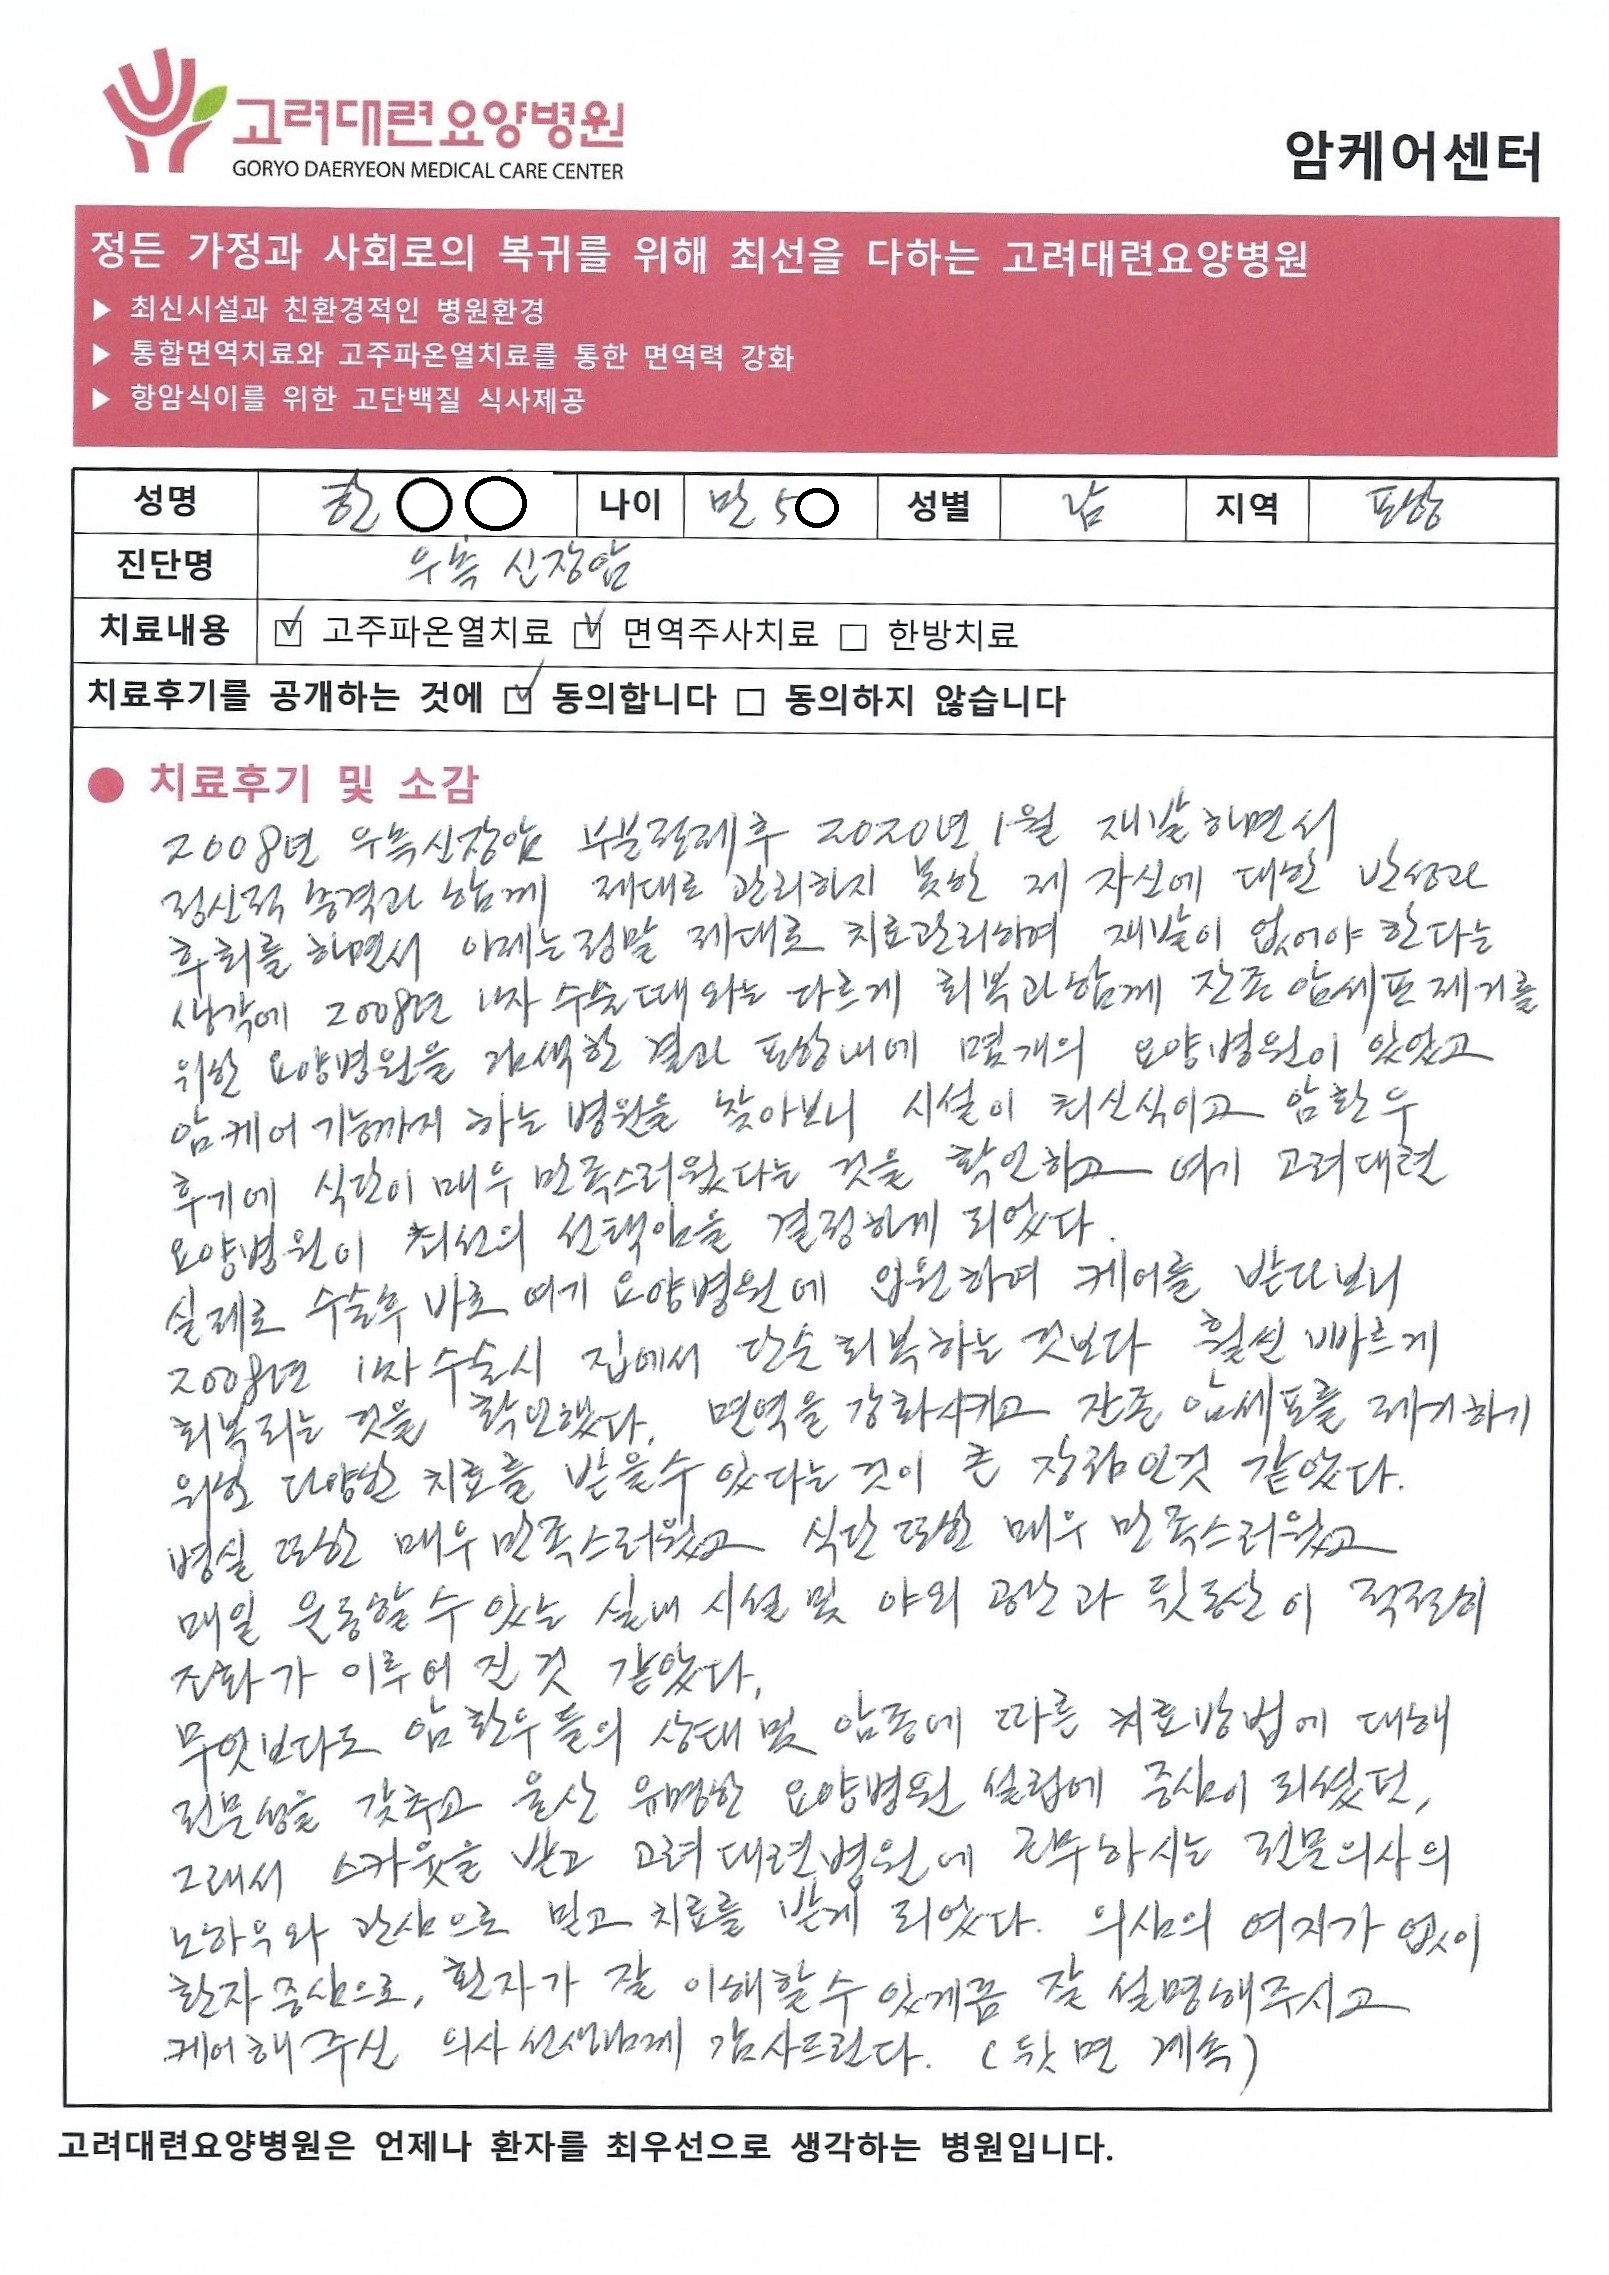 고려대련요양병원
GORYO DAERYEON MEDICAL CARE CENTER
암케어센터
정든 가정과 사회로의 복귀를 위해 최선을 다하는 고려대련요양병원
▶ 최신시설과 친환경적인 병원환경
▶ 통합면역치료와 고주파온열치료를 통한 면역력 강화
▶ 항암식이를 위한 고단백질 식사제공
성명 한○○ 나이 만 5○ 성별 남 지역 포항
진단명 우측 신장암
치료내용 ☑ 고주파온열치료 ☑ 면역주사치료 □ 한방치료
치료후기를 공개하는 것에 ☑ 동의합니다 □ 동의하지 않습니다
● 치료후기 및 소감
2008년 우측신장암 부분절제후 2020년 1월 재발하면서
정신적 충격과 함께 제대로 관리하지 못한 제 자신에 대한 반성과
후회를 하면서 이제는 정말 제대로 치료관리하여 재발이 없어야 한다는
생각에 2008년 1차 수술때와는 다르게 회복과 함께 잔존 암세포 제거를
위한 요양병원을 검색한 결과 포항내에 몇개의 요양병원이 있었고
암케어 기능까지 하는 병원을 찾아보니 시설이 최신식이고 암환우
후기에 식단이 매우 만족스러웠다는 것을 확인하고 여기 고려대련
요양병원이 최선의 선택임을 결정하게 되었다.
실제로 수술후 바로 여기 요양병원에 입원하여 케어를 받다보니
2008년 1차수술시 집에서 단순 회복하는 것보다 훨씬 빠르게
회복되는 것을 확인했다. 면역을 강화시키고 잔존 암세포를 제거하기
위한 다양한 치료를 받을수 있다는 것이 큰 장점인것 같았다.
병실 또한 매우 만족스러웠고 식단 또한 매우 만족스러웠고
매일 운동할 수 있는 실내 시설 및 야외 공간과 뒷동산이 적절히
조화가 이루어 진 것 같았다.
무엇보다도 암 환우들의 상태 및 암종에 따른 치료방법에 대해
전문성을 갖추고 울산 유명한 요양병원 설립에 중심이 되셨던,
그래서 스카웃을 받고 고려대련병원에 근무하시는 전문의사의
노하우와 관심으로 믿고 치료를 받게 되었다. 의심의 여지가 없이
환자 중심으로, 환자가 잘 이해할 수 있게끔 잘 설명해주시고
케어해 주신 의사 선생님께 감사드린다. (뒷 면 계속)
고려대련요양병원은 언제나 환자를 최우선으로 생각하는 병원입니다.